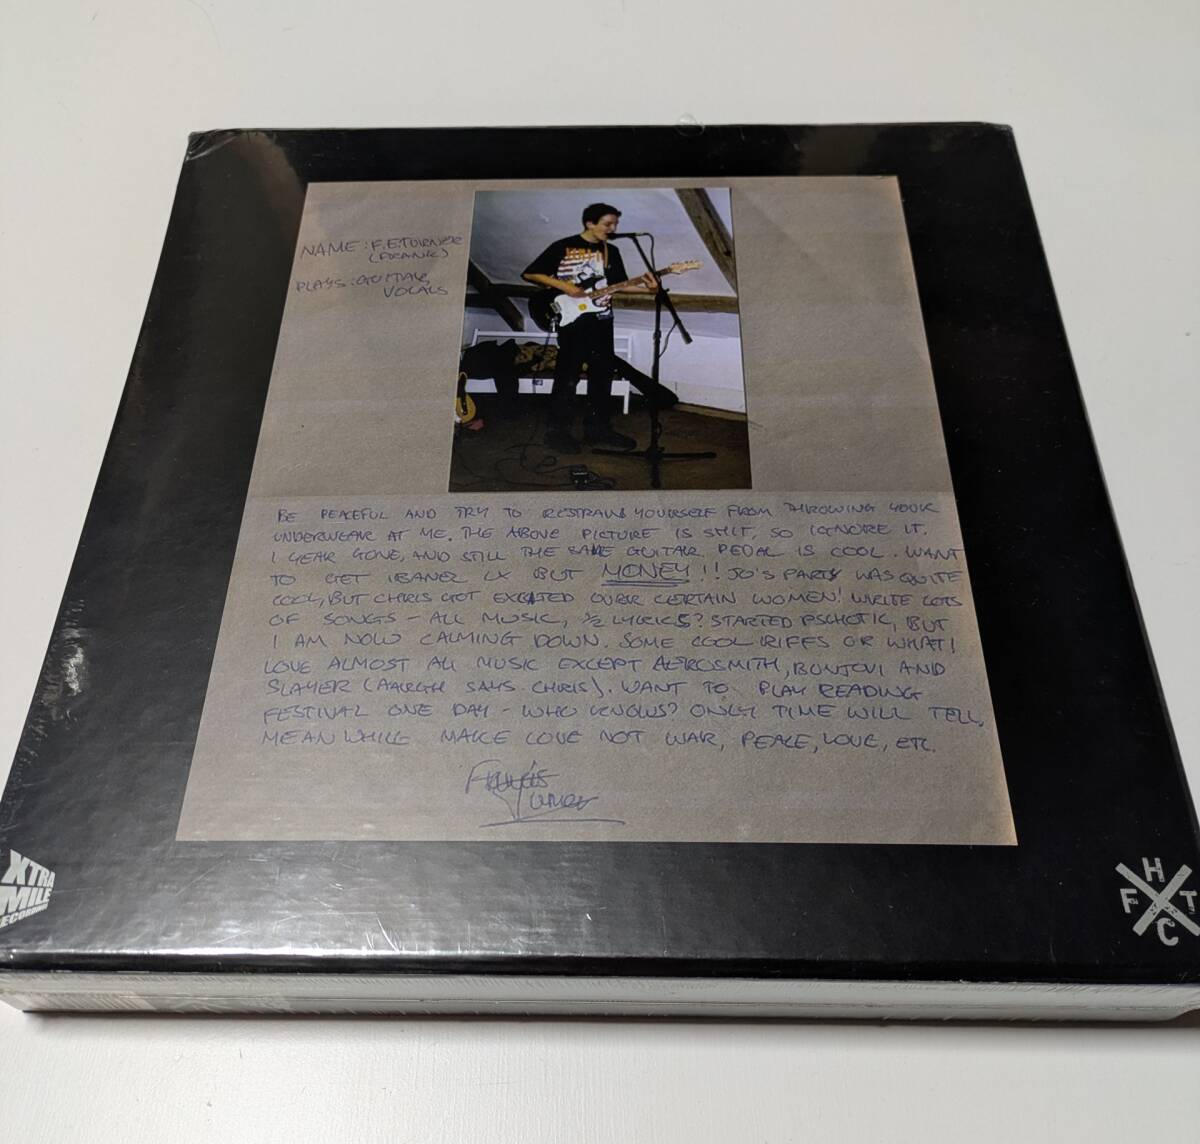 NAME: F.E.TURNER
(FRANK)
PLAYS: GUITAR,
VOCALS
BE PEACEFUL AND TRY TO RESTRAIN YOURSELF FROM THROWING YOUR
UNDERWEAR AT ME. THE ABOVE PICTURE IS SHIT, SO IGNORE IT.
1 YEAR GONE, AND STILL THE SAME GUITAR. PEDAL IS COOL. WANT
TO GET IBANEZ LX BUT MONEY!! JO'S PARTY WAS QUITE
COOL, BUT CHRIS GOT EXCITED OVER CERTAIN WOMEN! WRITE LOTS
OF SONGS - ALL MUSIC, 1/2 LYRICS? STARTED PSCHOTIC, BUT
I AM NOW CALMING DOWN. SOME COOL RIFFS OR WHAT!
LOVE ALMOST ALL MUSIC EXCEPT AEROSMITH, BONJOVI AND
SLAYER (AARGH SAYS CHRIS). WANT TO PLAY READING
FESTIVAL ONE DAY - WHO KNOWS? ONLY TIME WILL TELL,
MEANWHILE MAKE LOVE NOT WAR, PEACE, LOVE, ETC.
Francis
Turner
XTRA
MILE
RECORDINGS
H
F T
C